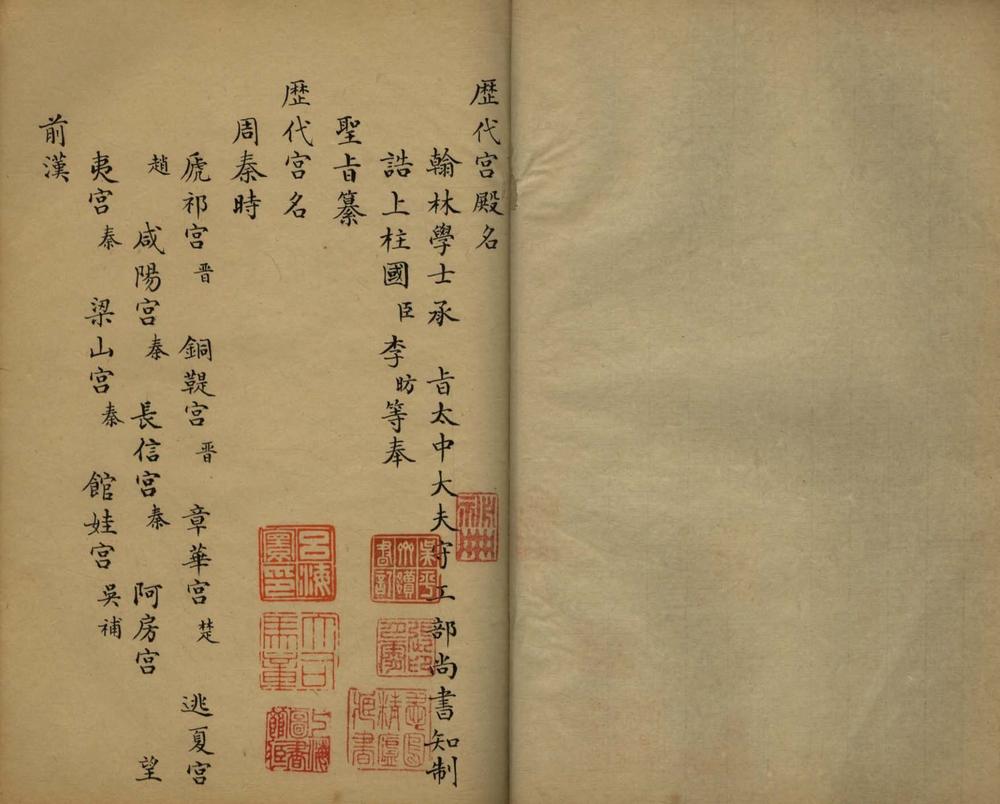 歴代宫殿名
翰林學士承　旨太中大夫守工部尚書知制
誥上柱國臣李昉等奉
聖旨纂
歴代宫名
周秦時
虒祁宫晋　銅鞮宫晋　章華宫楚　逃夏宫
趙　咸陽宫秦　長信宫秦　阿房宫　望
夷宫秦　梁山宫秦　館娃宫吳補
前漢